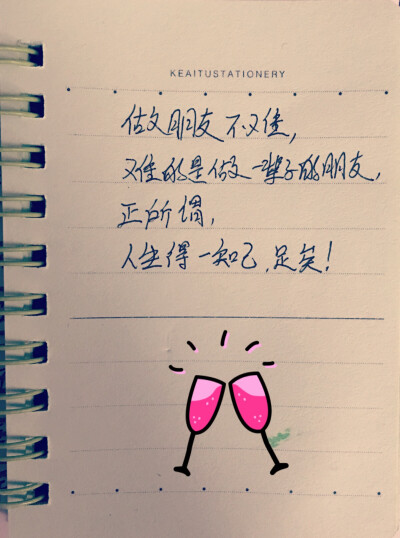 KEAITUSTATIONERY
做朋友不难,
难的是做一辈子的朋友,
正所谓,
人生得一知己,足矣!